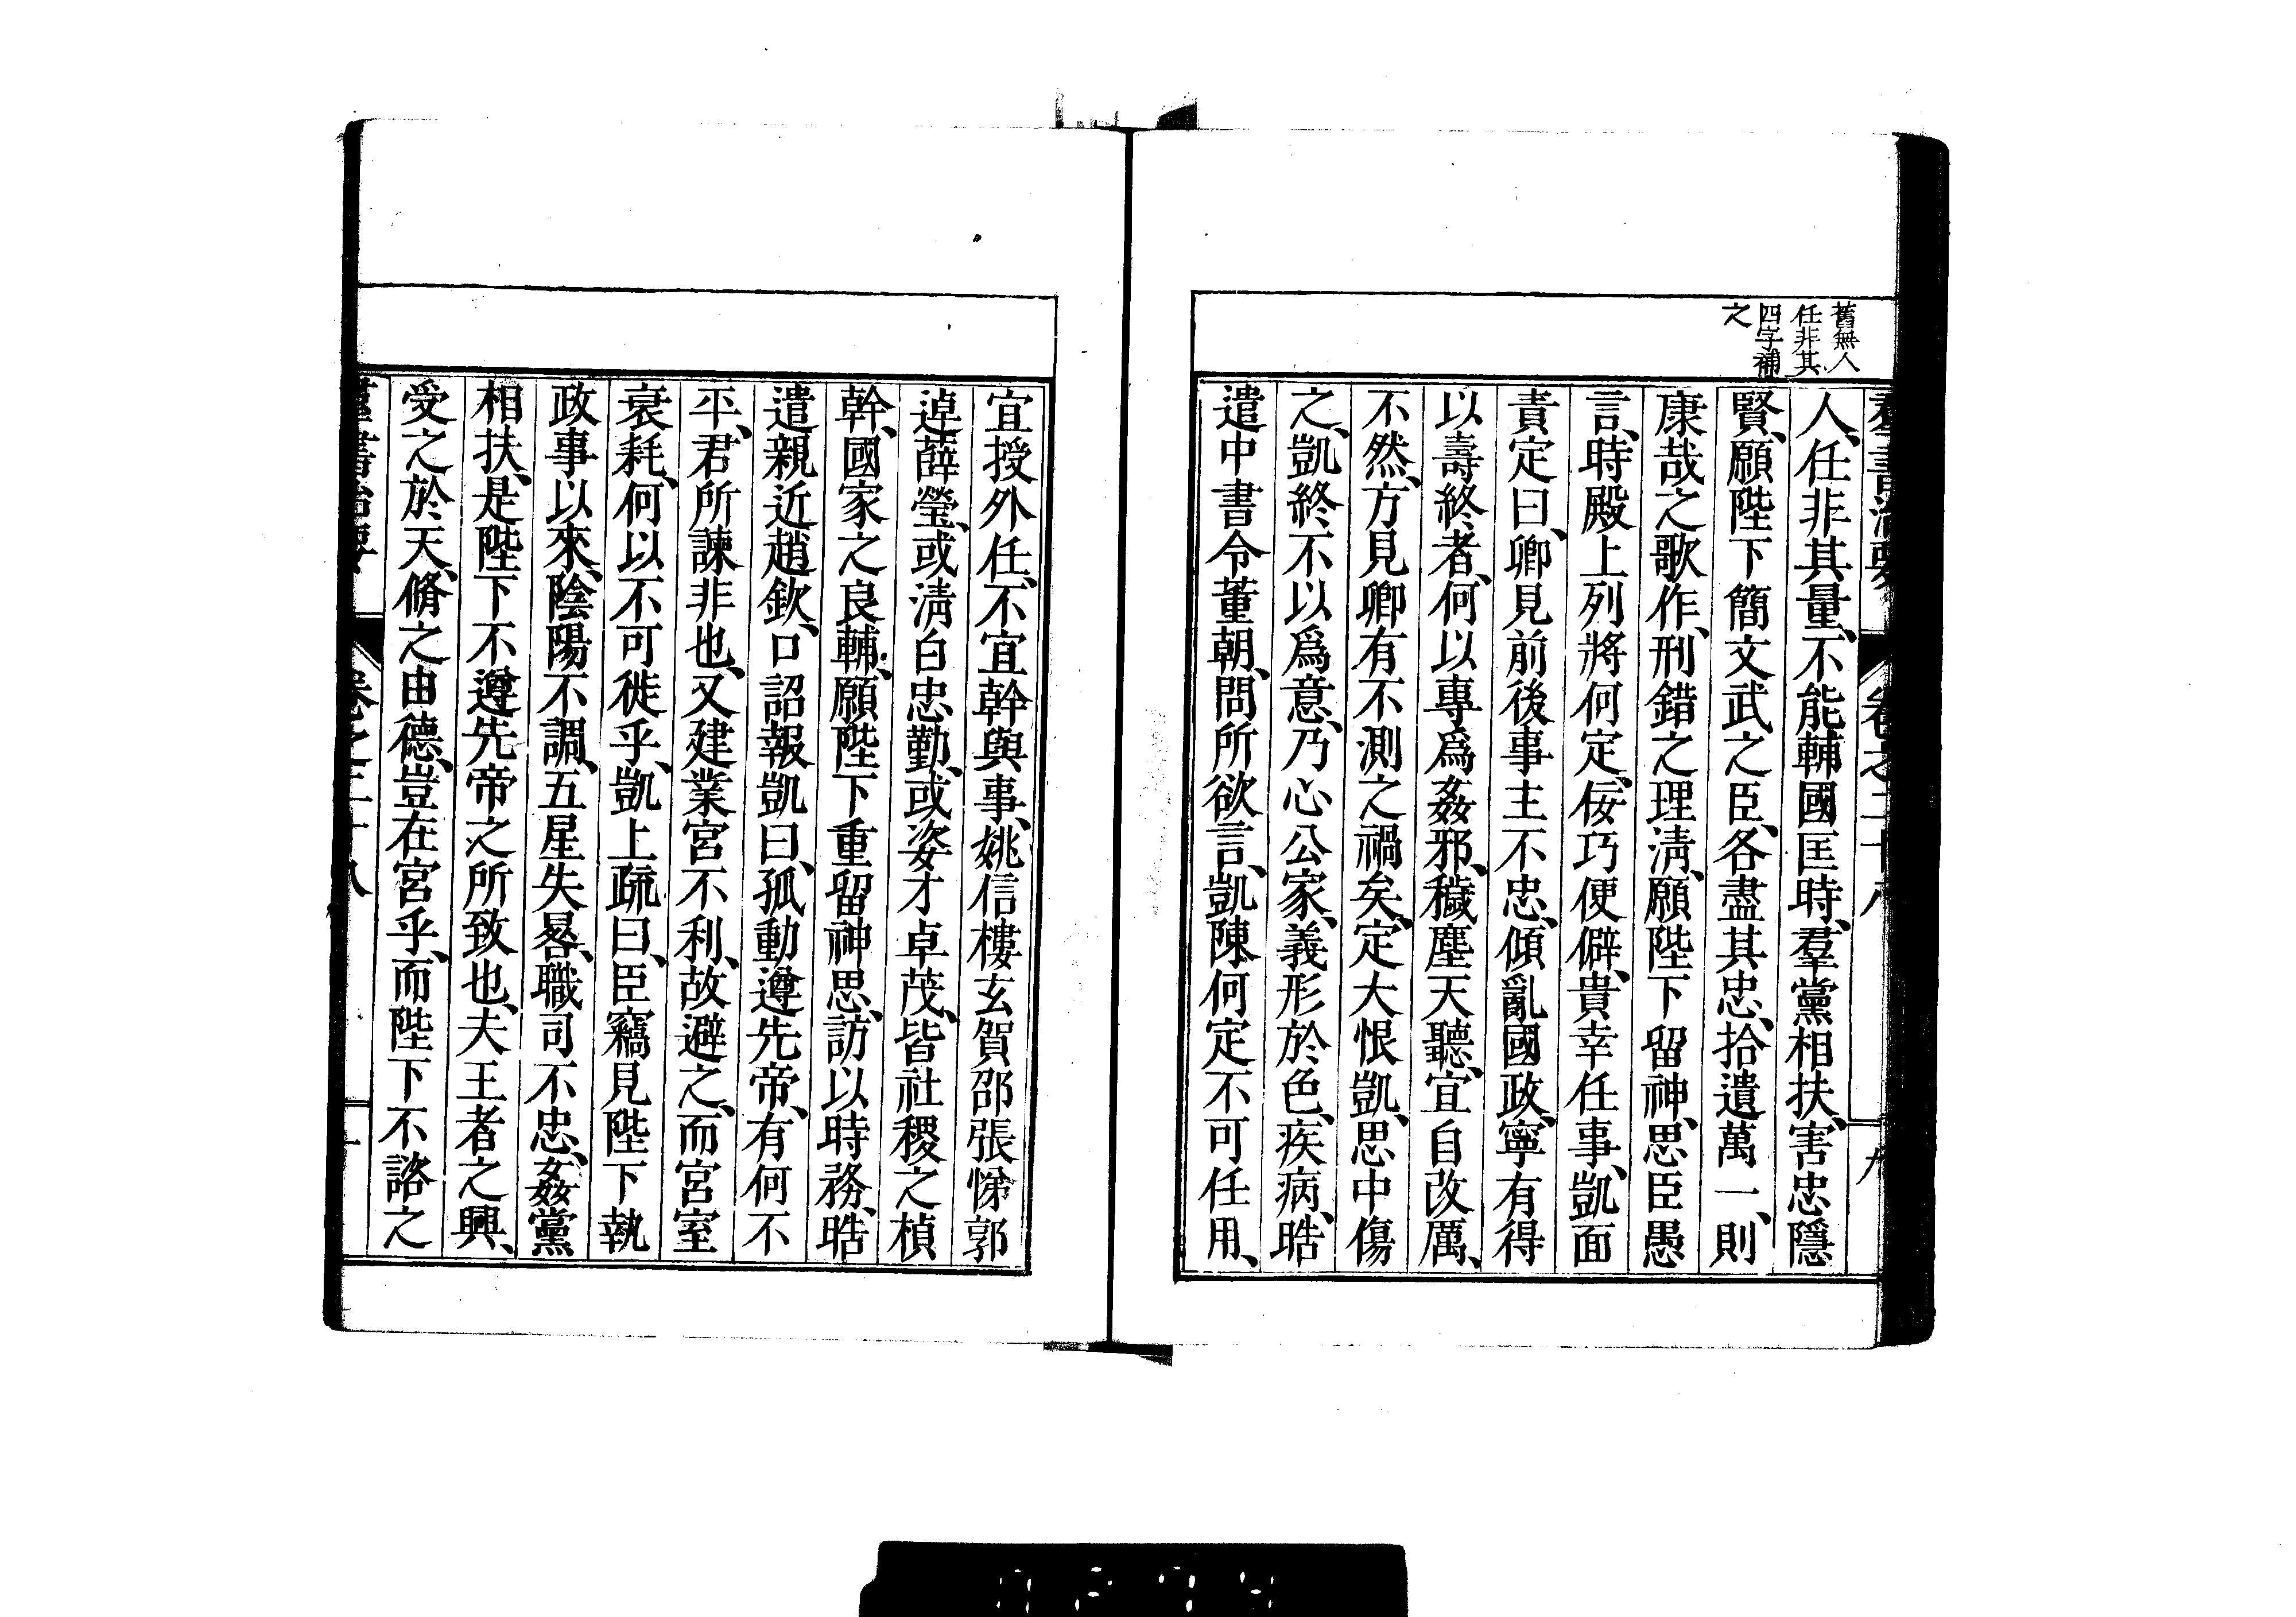 舊無人
任非其
四字補
之
羣書治要 卷之二十八 九
人、任非其量、不能輔國匡時、羣黨相扶、害忠隱
賢、願陛下簡文武之臣、各盡其忠、拾遺萬一、則
康哉之歌作、刑錯之理淸、願陛下留神、思臣愚
言、時殿上列將何定、佞巧便僻、貴幸任事、凱面
責定曰、卿見前後事主不忠、傾亂國政、寧有得
以壽終者、何以專爲姦邪、穢塵天聽、宜自改厲、
不然、方見卿有不測之禍矣、定大恨凱、思中傷
之、凱終不以爲意、乃心公家、義形於色、疾病、晧
遣中書令董朝、問所欲言、凱陳何定不可任用、
宜授外任、不宜幹與事、姚信樓玄賀邵張悌郭
逴薛瑩、或淸白忠勤、或姿才卓茂、皆社稷之楨
幹、國家之良輔、願陛下重留神思、訪以時務、晧
遣親近趙欽、口詔報凱曰、孤動遵先帝、有何不
平、君所諫非也、又建業宮不利、故避之、而宮室
衰耗、何以不可徙乎、凱上疏曰、臣竊見陛下執
政事以來、陰陽不調、五星失晷、職司不忠、姦黨
相扶、是陛下不遵先帝之所致也、夫王者之興、
受之於天、脩之由德、豈在宮乎、而陛下不諮之
羣書治要 卷之二十八